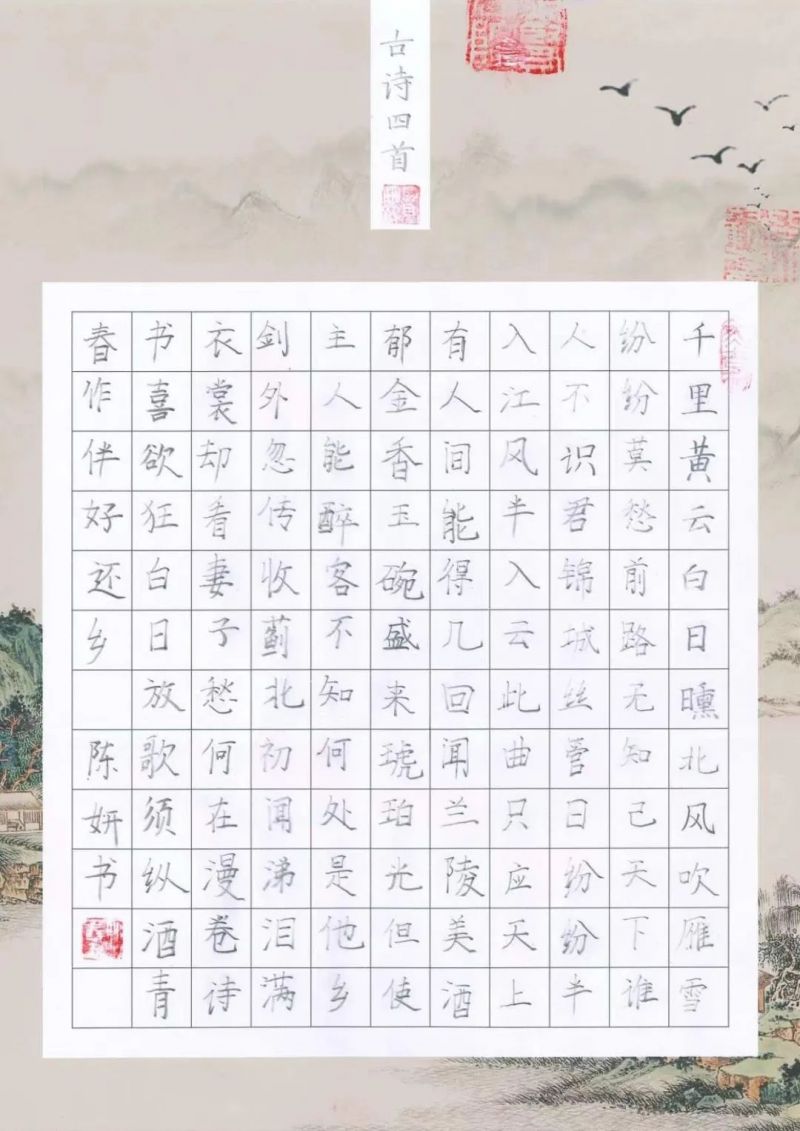 古诗四首
千里黄云白日曛北风吹雁雪
纷纷莫愁前路无知己天下谁
人不识君锦城丝管日纷纷半
入江风半入云此曲只应天上
有人间能得几回闻兰陵美酒
郁金香玉碗盛来琥珀光但使
主人能醉客不知何处是他乡
剑外忽传收蓟北初闻涕泪满
衣裳却看妻子愁何在漫卷诗
书喜欲狂白日放歌须纵酒青
春作伴好还乡 陈妍书